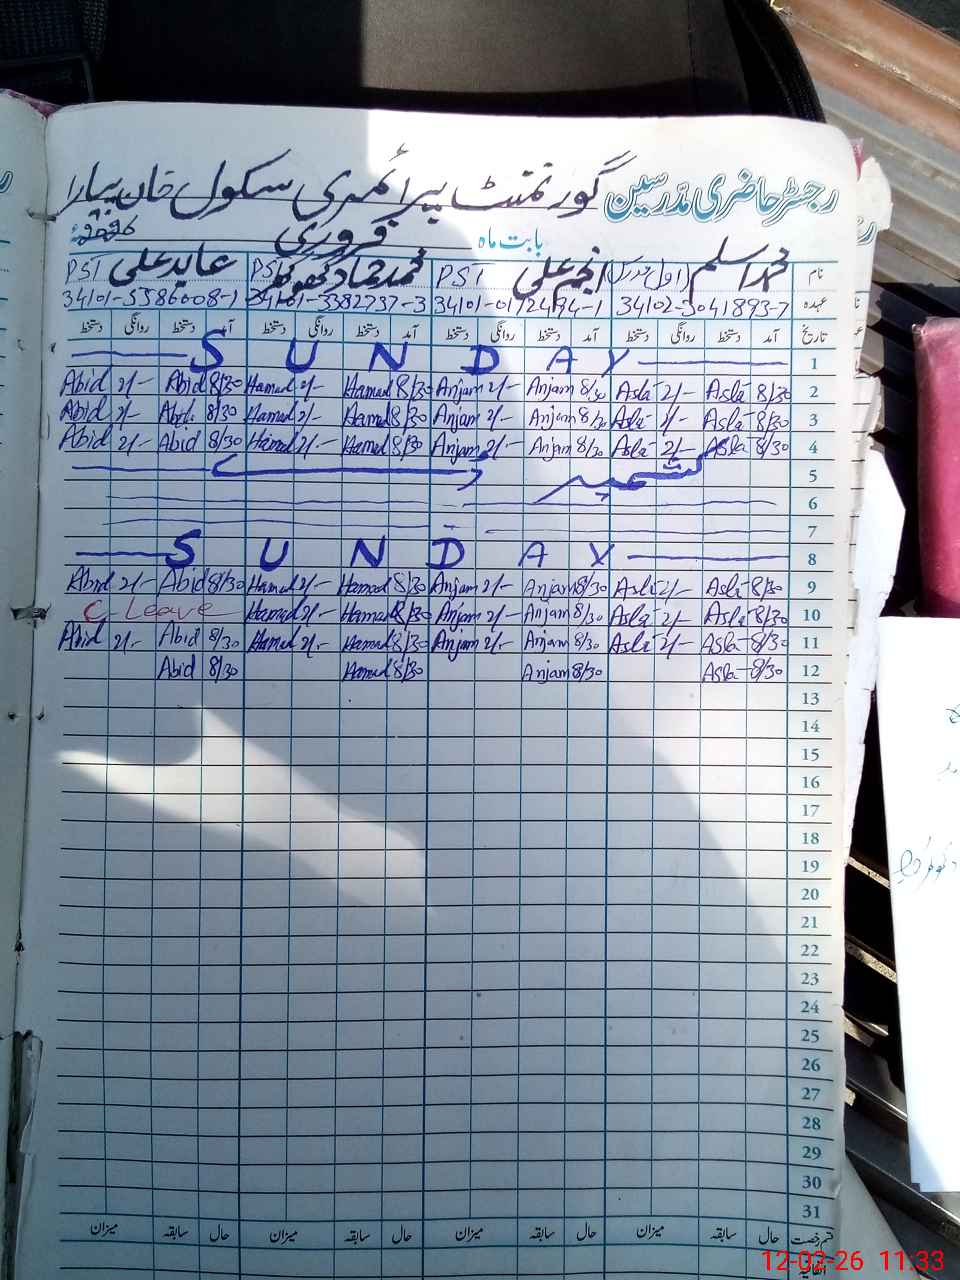 رجسٹر حاضری مدرسین گورنمنٹ پرائمری سکول خان پیارا
بابت ماہ فروری
نام محمد اسلم (اول مدرس) انجم علی PST محمد حماد کھوکھر PST عابد علی PST
عہدہ 34102-3041893-7 34101-0172494-1 34101-3382737-3 34101-5386008-1
تاریخ آمد دستخط روانگی دستخط آمد دستخط روانگی دستخط آمد دستخط روانگی دستخط آمد دستخط روانگی دستخط
SUNDAY 1
Abid 2/- Abid 8/30 Hamad 2/- Hamad 8/30 Anjam 2/- Anjam 8/30 Asla 2/- Asla 8/30 2
Abid 2/- Abid 8/30 Hamad 2/- Hamad 8/30 Anjam 2/- Anjam 8/30 Asla 2/- Asla 8/30 3
Abid 2/- Abid 8/30 Hamad 2/- Hamad 8/30 Anjam 2/- Anjam 8/30 Asla 2/- Asla 8/30 4
5 کشمیر ڈے
6
7
SUNDAY 8
Abid 2/- Abid 8/30 Hamad 2/- Hamad 8/30 Anjam 2/- Anjam 8/30 Asla 2/- Asla 8/30 9
C-Leave Hamad 2/- Hamad 8/30 Anjam 2/- Anjam 8/30 Asla 2/- Asla 8/30 10
Abid 2/- Abid 8/30 Hamad 2/- Hamad 8/30 Anjam 2/- Anjam 8/30 Asla 2/- Asla 8/30 11
Abid 8/30 Hamad 8/30 Anjam 8/30 Asla 8/30 12
13
14
15
16
17
18
19
20
21
22
23
24
25
26
27
28
29
30
31
قسم رخصت حال سابقہ میزان حال سابقہ میزان حال سابقہ میزان حال سابقہ میزان
اتفاقیہ
12-02-26 11:33